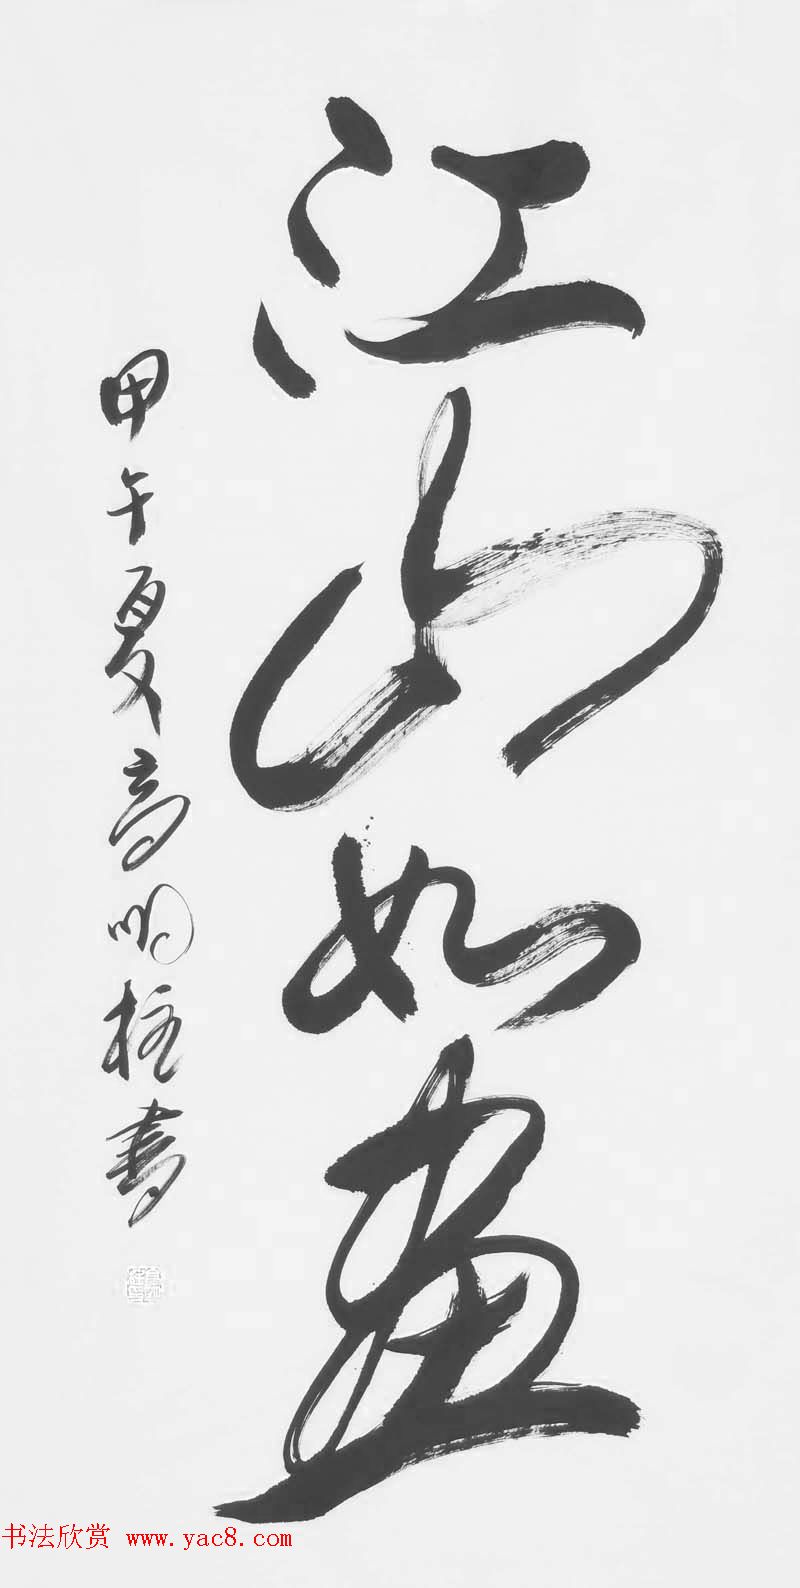 江山如画
甲午夏高明柱书
书法欣赏 www.yac8.com